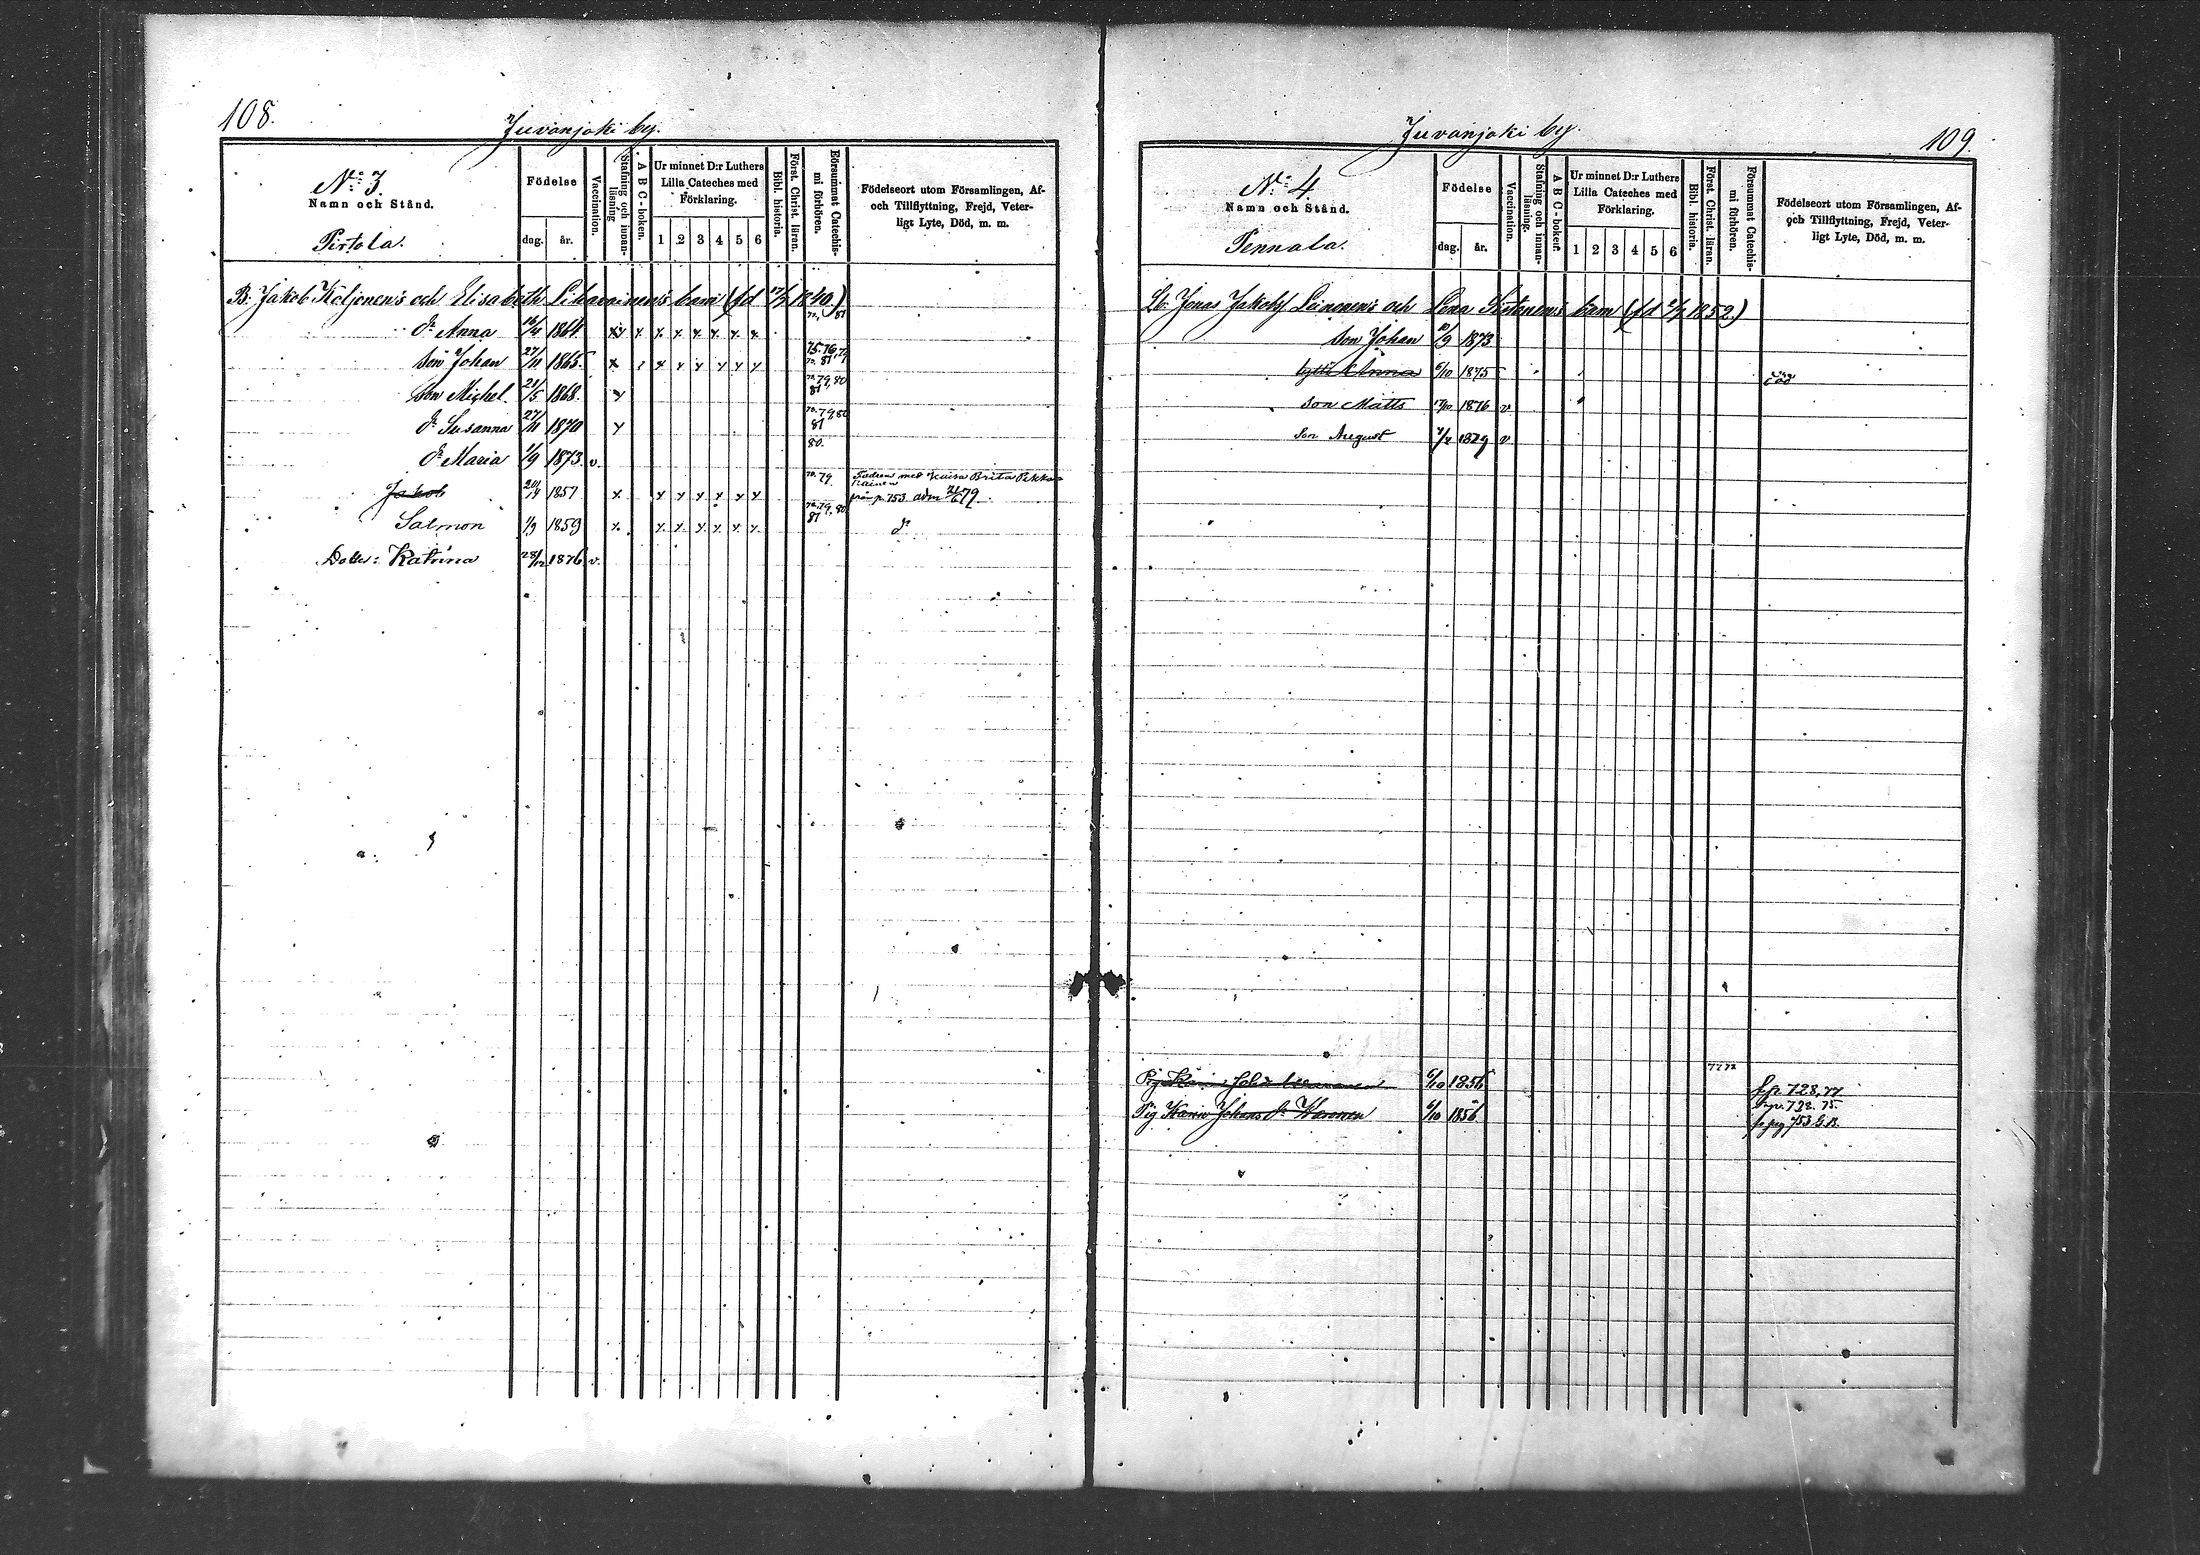 108.
Juvanjoki by.
No: 3.
Namn och Stånd.
Pirtola.
Födelse
dag. år.
Vaccination.
Stafning och innanläsning
A B C-boken.
Ur minnet D:r Luthers
Lilla Cateches med
Förklaring.
1 2 3 4 5 6
Bibl. historia.
Först. Christ. läran.
Försummat Catechismi förhören.
Födelseort utom Församlingen, Af-
och Tillflyttning, Frejd, Veter-
ligt Lyte, Död, m. m.
B: Jakob Koljonen's och Elisabeth barn (fd 17/7 1840.)
dr Anna 16/4 1864. x x x x x x x 81
son Johan 27/11 1865. x x x x x x x 75.76,79 81
son Michel. 21/5 1868. x 79,80 81
dr Susanna 27/11 1870 x 79,80 81
dr Maria 1/9 1873. v. 80.
Jakob 20/4 1857 x x x x x x x 79 med Kaisa Brita
från p. 753. adm 79.
Salmon 1/9 1859 x. x x x x x x 79, 80 81 do
Dotter: Katrina 28/12 1876 v.
Juvanjoki by.
109.
No: 4.
Namn och Stånd.
Pennala.
Födelse
dag. år.
Vaccination.
Stafning och innanläsning.
A B C-boken.
Ur minnet D:r Luthers
Lilla Cateches med
Förklaring.
1 2 3 4 5 6
Bibl. historia.
Först. Christ. läran.
Försummat Catechismi förhören.
Födelseort utom Församlingen, Af-
och Tillflyttning, Frejd, Veter-
ligt Lyte, Död, m. m.
Lb. Jonas Jakobss. Leinonen's och Lena barn (fd 2/7 1852.)
son Johan 10/9 1873
Anna 6/10 1875 död
son Matts 17/10 1876 v
son August 1879 v
6/10 1856 728, 77
Pig Karin Johans dr 6/10 1856. 728. 75.
753